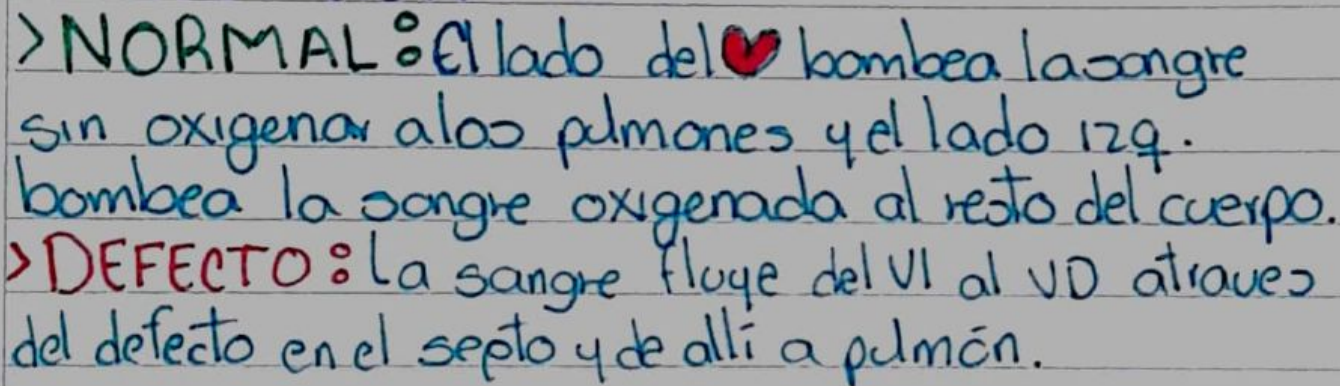 >NORMAL: El lado del ❤ bombea la sangre
sin oxigenar a los pulmones y el lado izq.
bombea la sangre oxigenada al resto del cuerpo.
>DEFECTO: La sangre fluye del VI al VD atraves
del defecto en el septo y de allí a pulmón.